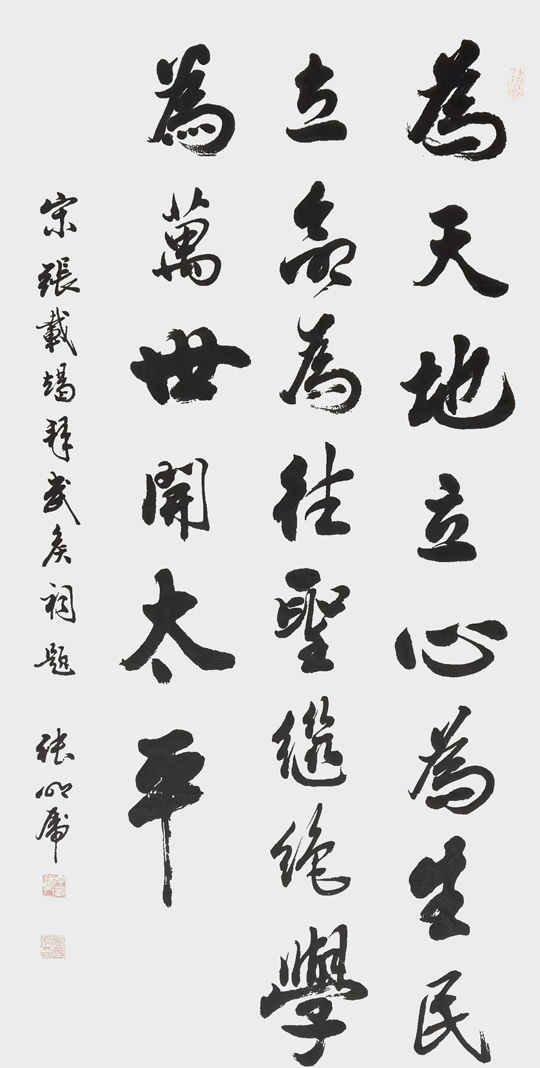 為天地立心為生民
立命為往聖繼絕學
為萬世開太平
宋張載謁拜武侯祠題